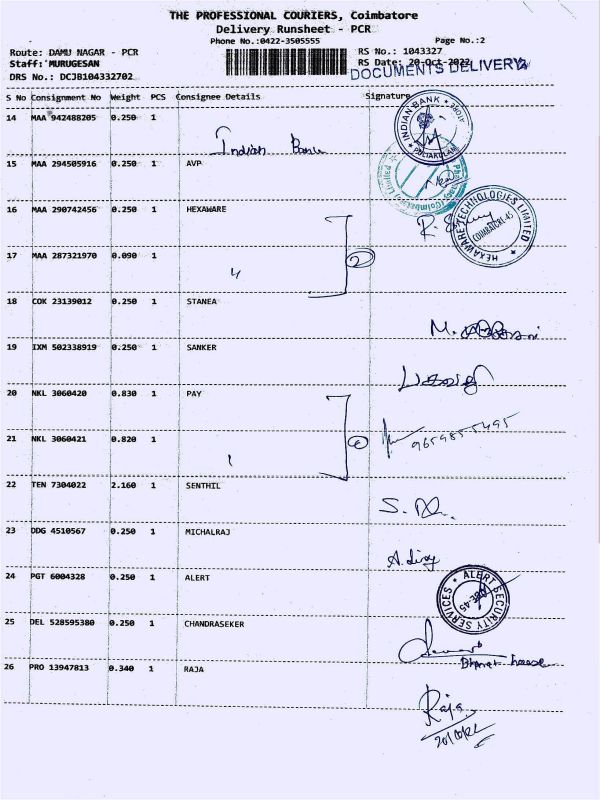 THE PROFESSIONAL COURIERS, Coimbatore
Delivery Runsheet - PCR
Phone No.:0422-3505555 Page No.:2
Route: DAMU NAGAR - PCR RS No.: 1043327
Staff: MURUGESAN RS Date: 20-Oct-2022
DRS No.: DCJB104332702 DOCUMENTS DELIVERY
S No Consignment No Weight PCS Consignee Details Signature
14 MAA 942488205 0.250 1
INDIAN BANK
Indian Bank
15 MAA 294505916 0.250 1 AVP
16 MAA 290742456 0.250 1 HEXAWARE
HEXAWARE TECHNOLOGIES LIMITED
COIMBATORE-45
17 MAA 287321970 0.090 1
2
18 COK 23139012 0.250 1 STANEA
19 IXM 502338919 0.250 1 SANKER
20 NKL 3060420 0.830 1 PAY
9659855495
21 NKL 3060421 0.820 1
22 TEN 7304022 2.160 1 SENTHIL
23 DDG 4510567 0.250 1 MICHALRAJ
24 PGT 6004328 0.250 1 ALERT
ALERT SECURITY SERVICES
25 DEL 528595380 0.250 1 CHANDRASEKER
26 PRO 13947813 0.340 1 RAJA
Raja